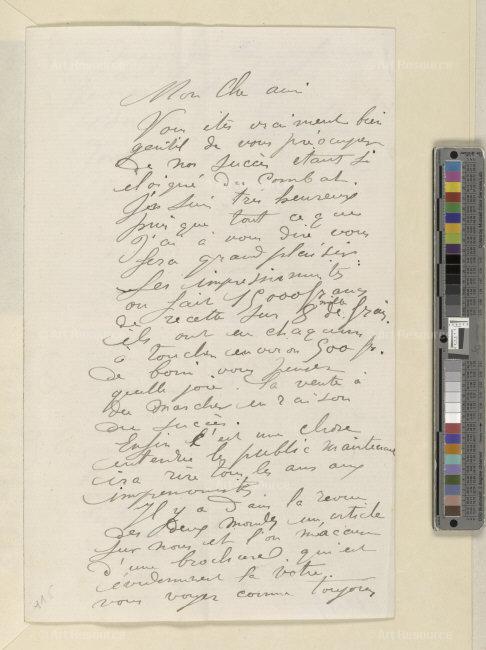 Mon Che ami
Vous etes vraiment bien
gentil de vous préocuper
de nos succès etant si
eloigné du Combat.
J'en suis très heureux
puisque tout ce que
j'ai à vous dire vous
fera grand plaisir
Les impressionnistes
on fait 15000 francs
de recette sur 8 mille de frais.
ils ont eu chaquun
à toucher environ 500 fr.
de boni vous pensez
quelle joie. la vente à
du marcher en raison
du succès.
Enfin c'est une chose
entendue le public maintenant
ira rire tous les ans aux
impressionnistes
Il y a dans la revue
des Deux mondes un article
sur nous et l'on m'accuse
d'une brochure qui est
évidemment la votre.
vous voyez comme toujours
Art Resource
Art Resource
Art Resource
Art Resource